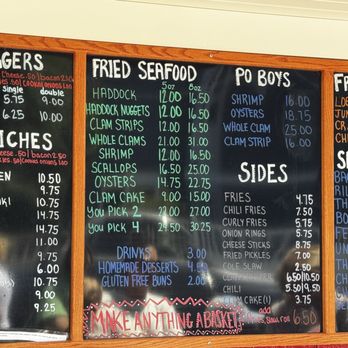 GERS
Cheese .50 | bacon 2.50
single double
5.75 9.00
6.25 10.00
ICHES
EN 10.50
9.75
10.25
14.75
14.25
14.75
11.00
9.75
6.00
10.75
9.25
9.25
FRIED SEAFOOD
5oz 8oz
HADDOCK 12.00 16.50
HADDOCK NUGGETS 12.00 16.50
CLAM STRIPS 12.00 16.50
WHOLE CLAMS 21.00 31.00
SHRIMP 12.00 16.50
SCALLOPS 16.50 25.50
OYSTERS 14.75 22.75
CLAM CAKE 9.00 15.00
YOU PICK 2 22.00 27.00
YOU PICK 4 24.50 30.25
DRINKS 3.00
HOMEMADE DESSERTS 4.
GLUTEN FREE BUNS 2.00
MAKE ANYTHING A BASKET:
add
PO BOYS
SHRIMP 16.00
OYSTERS 18.75
WHOLE CLAM 25.00
CLAM STRIP 16.00
SIDES
FRIES 4.75
CHILI FRIES 7.50
CURLY FRIES 5.75
ONION RINGS 5.75
CHEESE STICKS 8.75
FRIED PICKLES 7.00
COLE SLAW 2.
6.50/10.50
CHILI 5.50/9.50
CLAM CAKE(1) 3.75